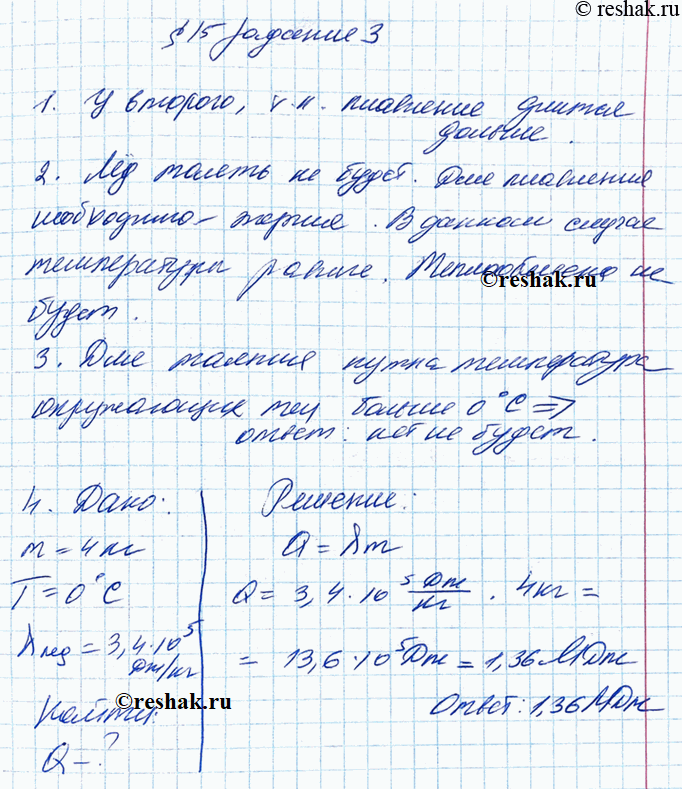 © reshak.ru
§ 15 Задание 3
1. У второго, т.к. плавление длится
дольше.
2. Лёд таять не будет. Для плавления
необходимо - энергия. В данном случае
температуры равные. Теплообмена не
© reshak.ru
будет.
3. Для таяния нужна температура
окружающих тел больше 0°C =>
ответ: нет не будет.
4. Дано:
m = 4 кг
T = 0°C
λлед = 3,4·10⁵
Дж/кг
Найти:
Q - ?
Решение:
Q = λm
Q = 3,4·10⁵ Дж/кг · 4кг =
= 13,6·10⁵ Дж = 1,36 МДж
Ответ: 1,36 МДж
© reshak.ru